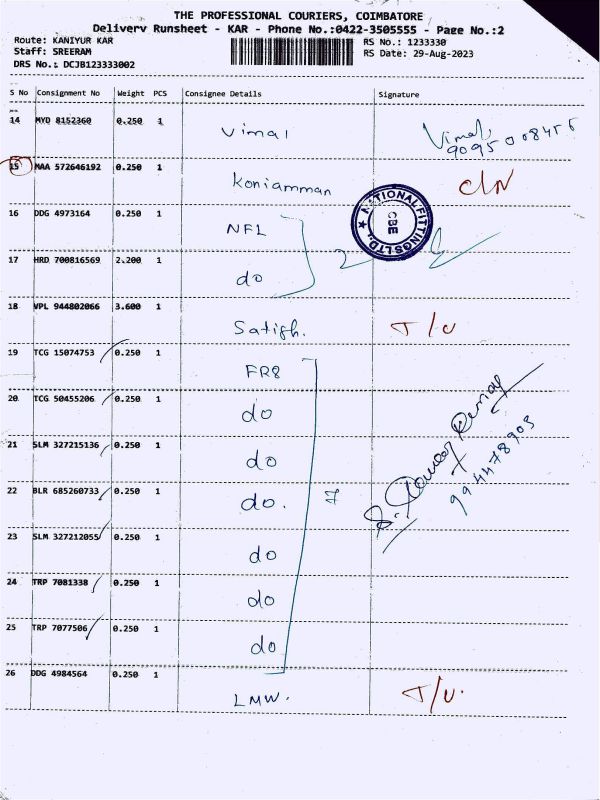 THE PROFESSIONAL COURIERS, COIMBATORE
Delivery Runsheet - KAR - Phone No.:0422-3505555 - Page No.:2
Route: KANIYUR KAR RS No.: 1233330
Staff: SREERAM RS Date: 29-Aug-2023
DRS No.: DCJB123333002
S No Consignment No Weight PCS Consignee Details Signature
14 MYD 8152360 0.250 1 Vimal Vimal,
15 MAA 572646192 0.250 1 Koniamman C/N
16 DDG 4973164 0.250 1 NFL
NATIONAL FITTINGS LTD. CBE
17 HRD 700816569 2.200 1 do 2
18 VPL 944802066 3.600 1 Satish. T/U
19 TCG 15074753 0.250 1 FR8
20 TCG 50455206 0.250 1 do
21 SLM 327215136 0.250 1 do
22 BLR 685260733 0.250 1 do. 7
23 SLM 327212055 0.250 1 do
24 TRP 7081338 0.250 1 do
25 TRP 7077506 0.250 1 do
26 DDG 4984564 0.250 1 LMW. T/U.